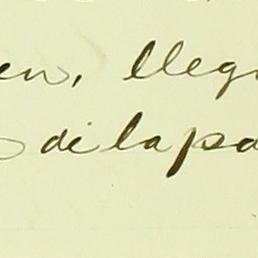 en, lleg
dilapa